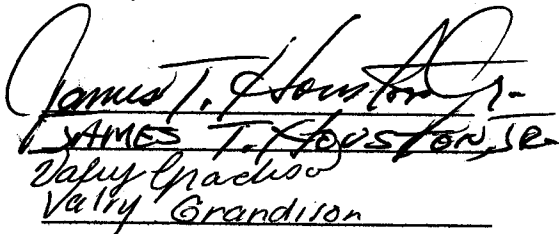 James T. Houston Jr.
JAMES T. HOUSTON, JR.
Valry Grandison
Valry Grandison